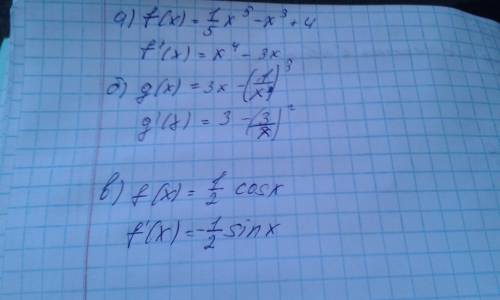 а) f(x) = 1/5 x⁵ - x³ + 4
f'(x) = x⁴ - 3x
б) g(x) = 3x - (1/x)³
g'(x) = 3 - (3/x)²
в) f(x) = 1/2 cosx
f'(x) = -1/2 sinx